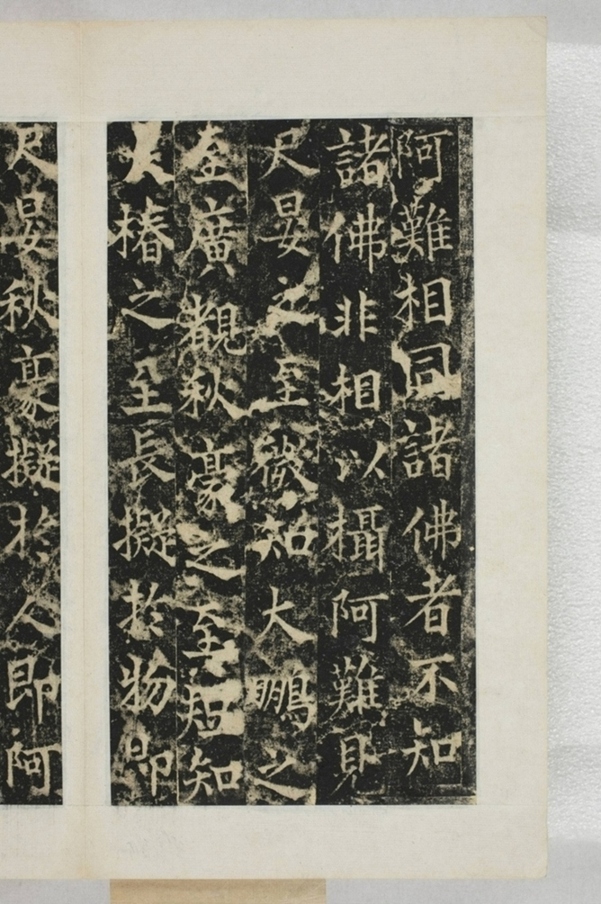 阿難相同諸佛者不知
諸佛非相以攝阿難見
尺晏之至微知大鵬之
至廣觀秋豪之至短知
大椿之至長擬扵物即
尺晏秋豪擬扵人即阿